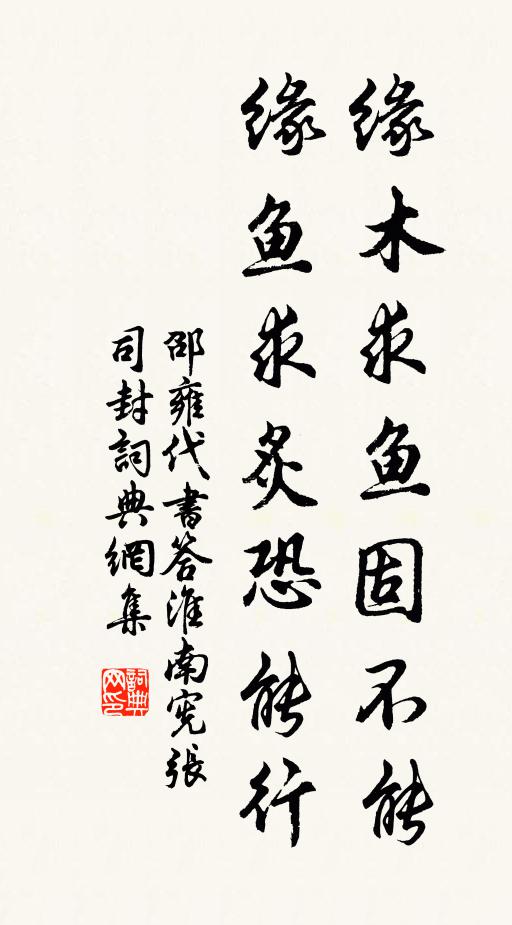 缘木求鱼固不能
缘鱼求炙恐能行
邵雍代書答淮南宪張
司封詞典網集
詞典
网印